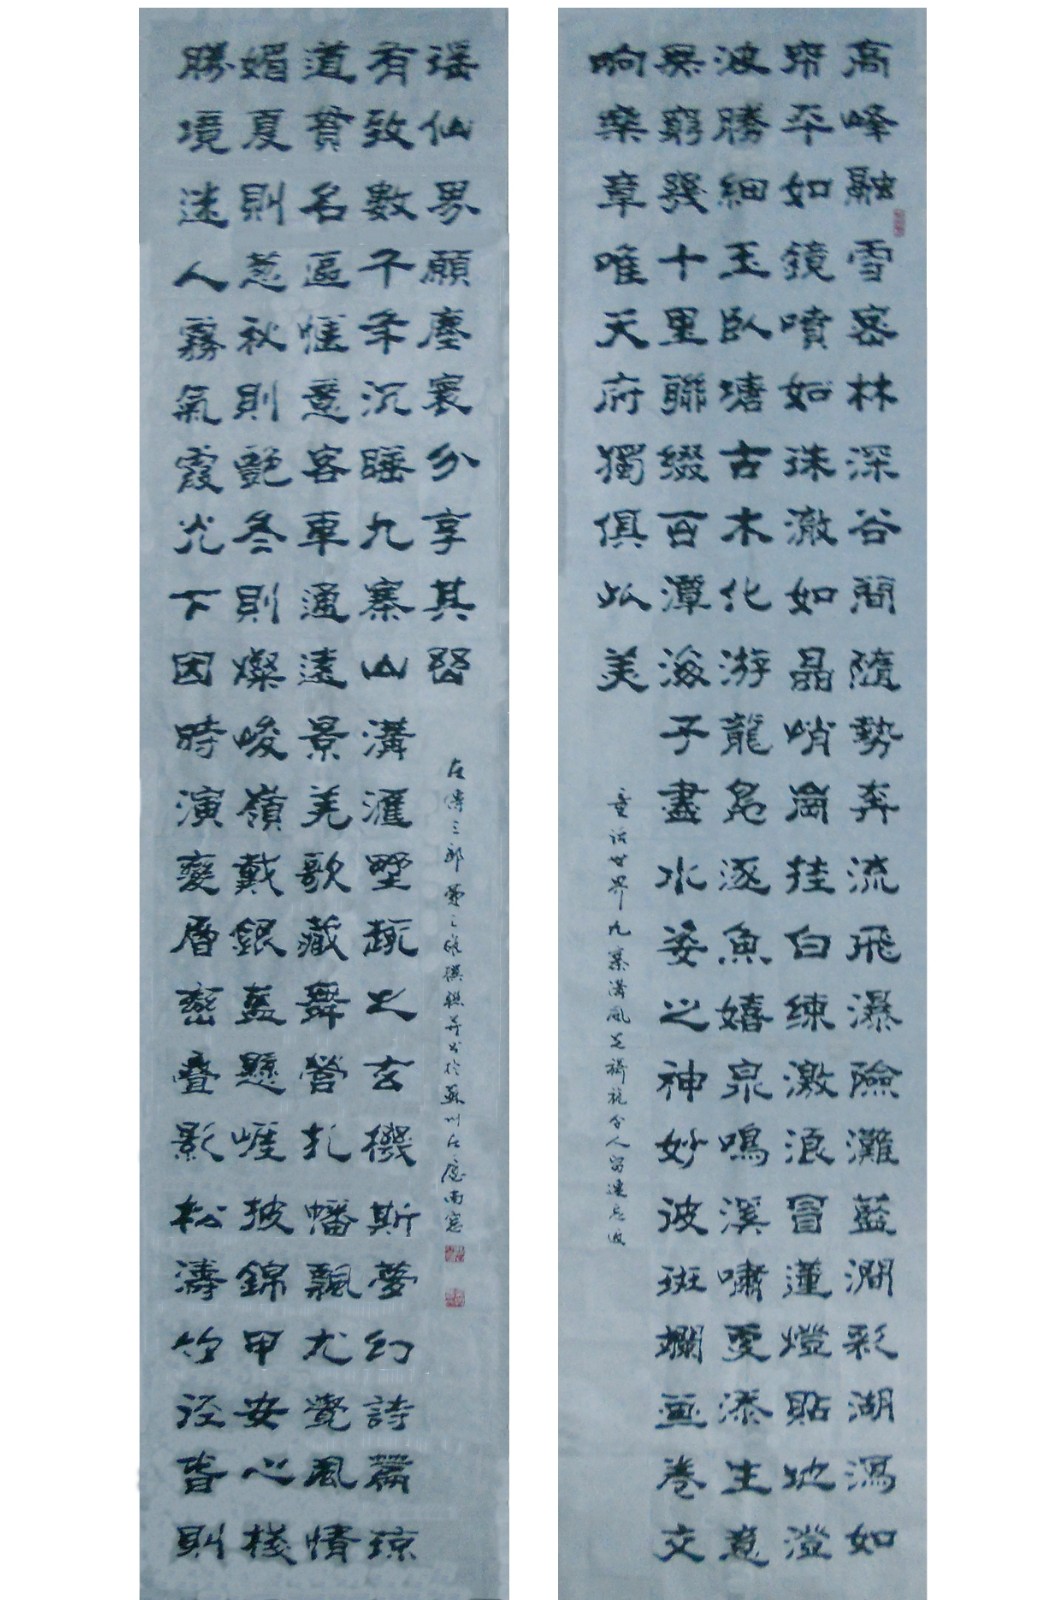 高峰融雪密林深谷間隨勢奔流飛瀑險灘藍澗彩湖瀉如
帘平如鏡噴如珠澈如晶峭崗挂白練激浪冒蓮燈貼地澄
波勝細玉臥塘古木化游龍鳧逐魚嬉泉鳴溪嘯更添生意
無窮幾十里聯綴百潭海子盡水姿之神妙彼斑斕畫卷交
响樂章唯天府獨俱此美
童話世界九寨溝風光旖旎令人留連忘返
勝境迷人霧氣霞光下因時演變層巒疊影松濤竹徑春則
媚夏則葱秋則艷冬則燦峻嶺戴銀盔懸崖披錦甲安心棧
道貫名區愜意客車通遠景羌歌藏舞營扎幡飄尤覺風情
有致數千年沉睡九寨山溝滙野趣之玄機斯夢幻詩篇瓊
瑤仙界願塵寰分享其
三郎撰聯並書於蘇州左廬南窗